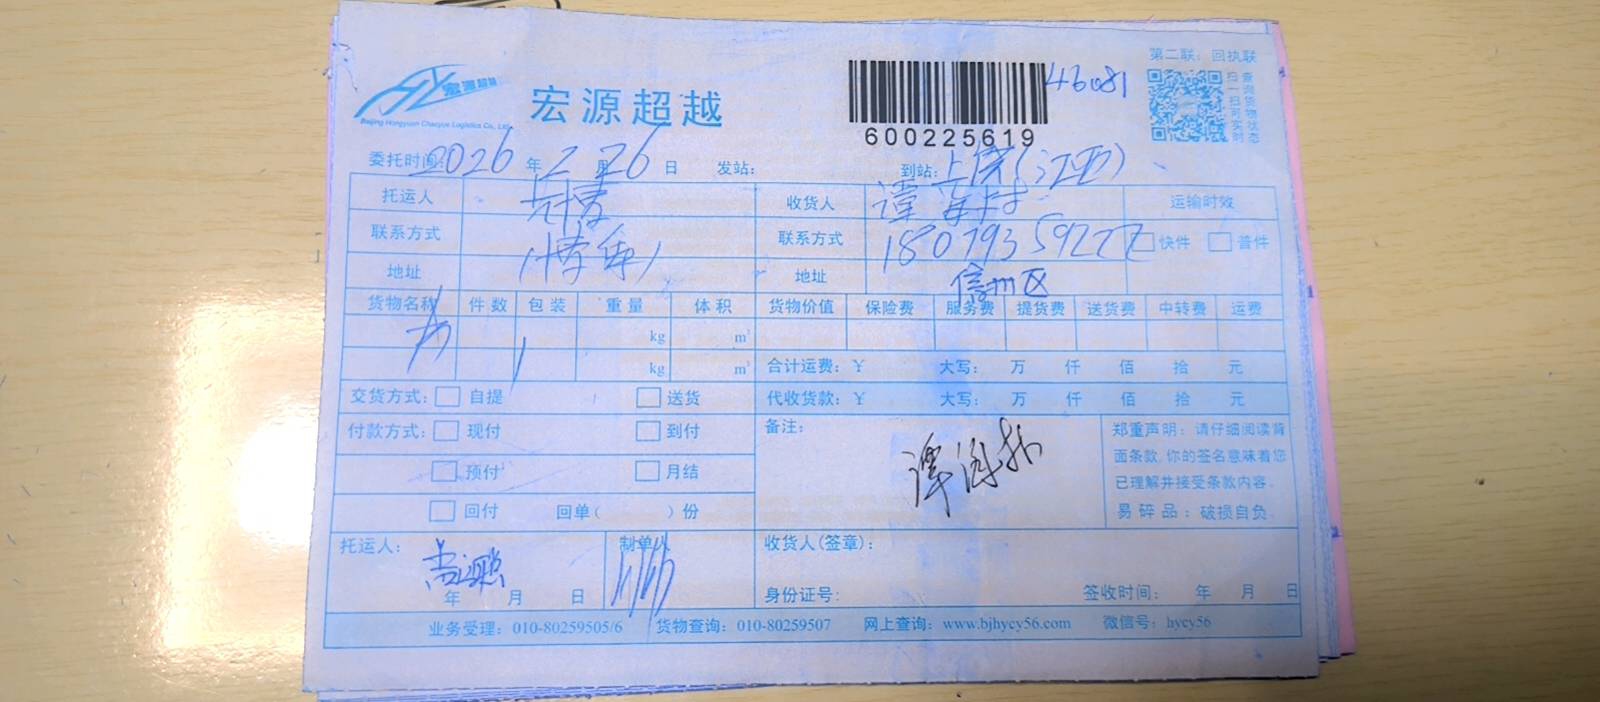 第二联：回执联
宏源超越
Beijing Hongyuan Chaoyue Logistics Co., Ltd
宏源超越
46081
600225619
扫一扫 查询货物实时状态
委托时间：2026年2月26日 发站： 到站：上饶(江西)
托运人 收货人 谭 运输时效
联系方式 联系方式 18079359222 快件 普件
地址 地址 信州区
货物名称 件数 包装 重量 体积 货物价值 保险费 服务费 提货费 送货费 中转费 运费
kg m³
1 kg m³ 合计运费：¥ 大写： 万 仟 佰 拾 元
交货方式： 自提 送货 代收货款：¥ 大写： 万 仟 佰 拾 元
付款方式： 现付 到付 备注：
预付 月结
回付 回单( )份
郑重声明：请仔细阅读背
面条款，你的签名意味着您
已理解并接受条款内容。
易碎品：破损自负。
托运人： 制单人 收货人(签章)：
年 月 日 身份证号： 签收时间： 年 月 日
业务受理：010-80259505/6 货物查询：010-80259507 网上查询：www.bjhycy56.com 微信号：hycy56